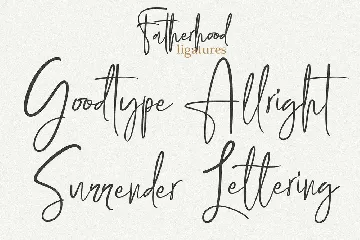 Fatherhood
ligatures
Goodtype Allright
Surrender Lettering